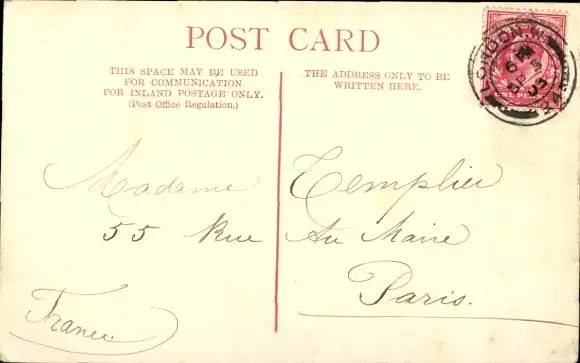 POST CARD
THIS SPACE MAY BE USED
FOR COMMUNICATION
FOR INLAND POSTAGE ONLY.
(Post Office Regulation.)
THE ADDRESS ONLY TO BE
WRITTEN HERE.
LONDON. W.
Madame Templier
55 Rue Au Maire
Paris.
France.